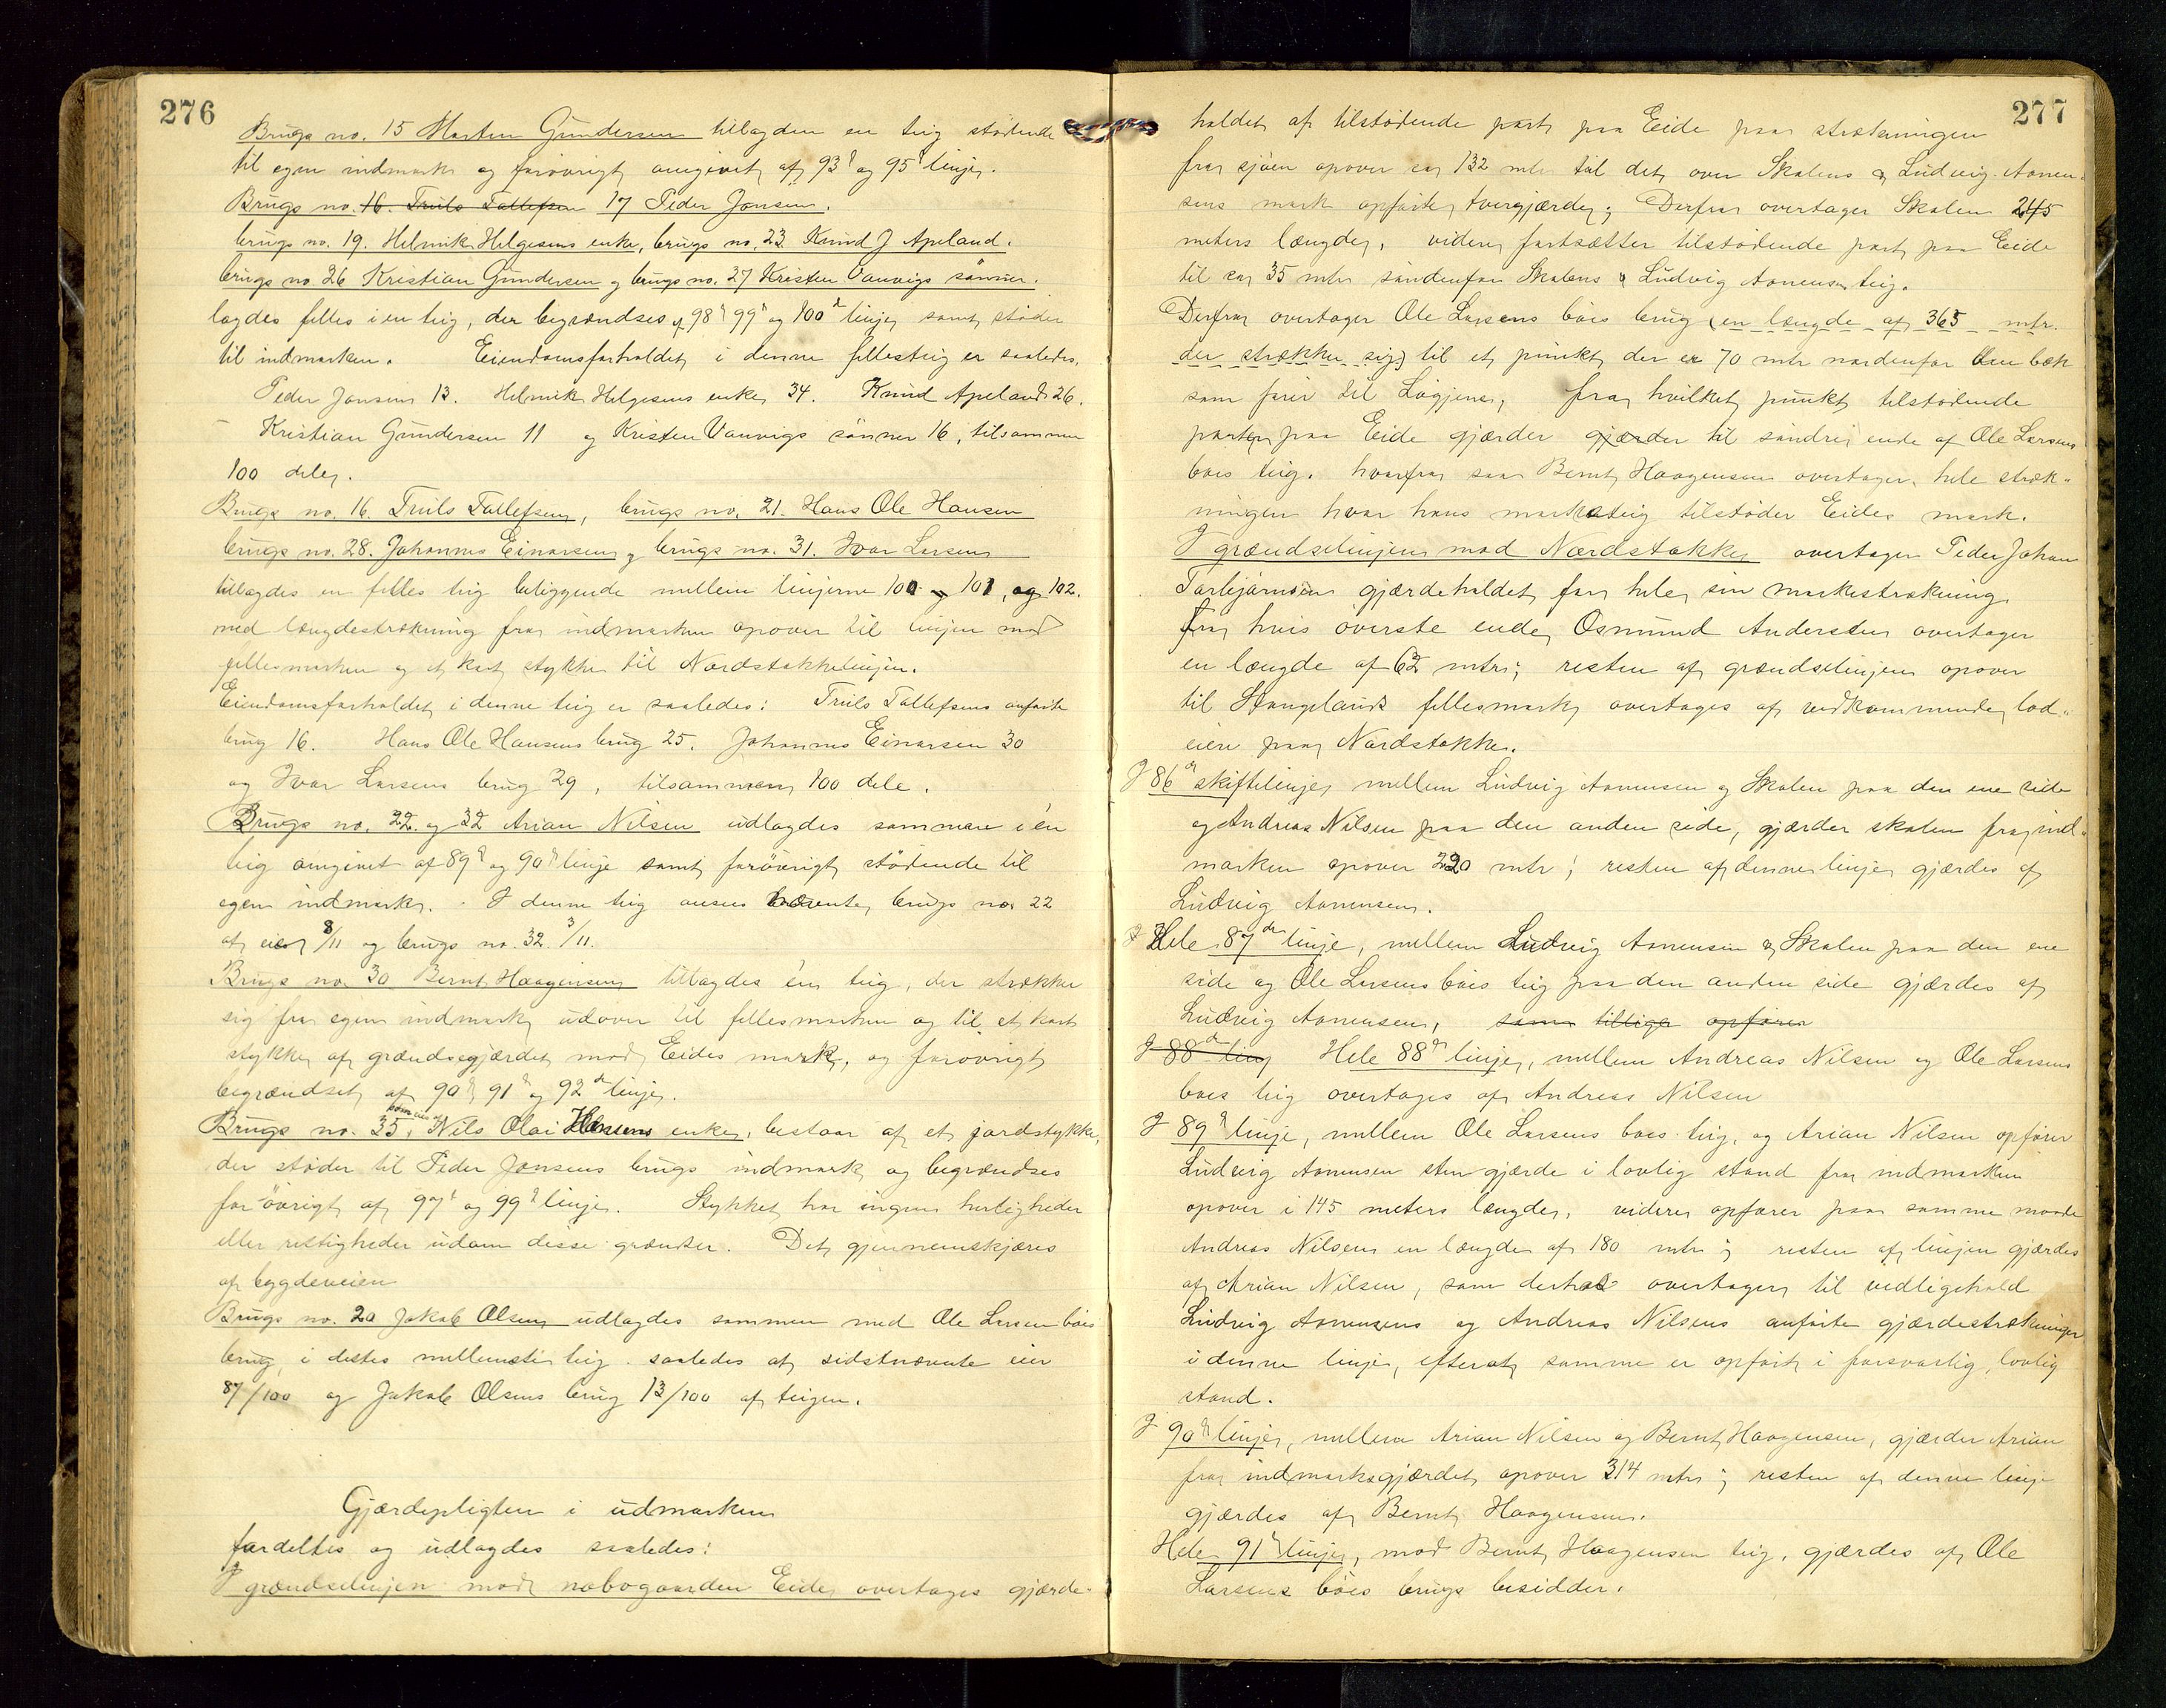 276
Brugs no. 15 Morten Gundersen tillagdes en teig stödende
til egen indmark og forövrigt omgivet af 93d og 95d linje.
Brugs no. 16. Truls Tallefsen 17 Peder Jonsen.
brugs no. 19. Helmik Helgesens enke, brugs no. 23 Knud J Apeland.
brugs no 26 Kristian Gundersen og brugs no. 27 Kristen Vanvigs sönner.
lagdes felles i en teig, der begrændses af 98d 99d og 100de linje samt stöder
til indmarken. Eiendomsforholdet i denne fellesteig er saaledes.
Peder Jonsens 13. Helmik Helgesens enke 34. Knud Apeland 26.
Kristian Gundersen 11 og Kristen Vanvigs sönner 16, tilsammen
100 dele.
Brugs no. 16. Truls Tallefsen, brugs no. 21. Hans Ole Hansen
brugs no. 28. Johannes Einarsen og brugs no. 31. Ivar Larsen
tillagdes en felles teig beliggende mellem linjerne 100 og 101, og 102.
med længdestrækning fra indmarken opover til linjen mod
fellesmarken og et kort stykke til Nordstokkelinjen.
Eiendomsforholdet i denne teig er saaledes: Truls Tallefsens anförte
brug 16. Hans Ole Hansens brug 25. Johannes Einarsen 30
og Ivar Larsens brug 29, tilsammen 100 dele.
Brugs no. 22. og 32 Arian Nilsen udlagdes sammen i én
teig omgivet af 89d og 90d linje samt forövrigt stödende til
egen indmark. I denne teig ansees nævnte brugs no 22
at eie 8/11 og brugs no. 32. 3/11.
Brugs no. 30 Bernt Haagensen tillagdes én teig, der strækker
sig fra egen indmark udover til fellesmarken og til et kort
stykke af grændsegjærdet mod Eides mark, og forövrigt
begrændset af 90d 91d og 92de linje.
som eies af
Brugs no. 35, Nils Olai Hansens enke, bestaar af et jordstykke,
der stöder til Peder Jonsens brugs indmark og begrændses
forövrigt af 97d og 99d linje. Stykket har ingen herligheder
eller rettigheder udom desse grændser. Det gjennemskjæres
af bygdeveien
Brugs no. 20 Jakob Olsen udlagdes sammen med Ole Larsen böes
brug, i dettes mellemste teig saaledes at sidstnævnte eier
87/100 og Jakob Olsens brug 13/100 af teigen.
Gjærdepligten i udmarken
fordeltes og udlagdes saaledes:
I grændselinjen mod nabogaarden Eide overtages gjærde-
277
holdet af tilstödende part paa Eide paa strækningen
fra sjöen opover ca 132 mtr til det over Skolens & Ludvig Aanen-
sens mark opförte tvergjærde; Derfra overtager Skolen 245
meters længde, videre fortsætter tilstödende part paa Eide
til ca 35 mtr söndenfor Skolens & Ludvig Aanensens teig.
Derfra overtager Ole Larsens böes brug (en længde af 365 mtr.
der strækker sig) til et punkt der er 70 mtr nordenfor den bæk
som förer til Lögjene, fra hvilket punkt tilstödende
parten paa Eide gjærder gjærder til söndre ende af Ole Larsens
böes teig. hvorfra saa Bernt Haagensen overtager hele stræk-
ningen hvor hans markateig tilstöder Eides mark.
I grændselinjen mod Nordstokke overtager Peder Johan
Torbjörnsen gjærdeholdet for hele sin markestrækning
fra hvis överste ende Osmund Andersen overtager
en længde af 62 mtr; resten af grændselinjen opover
til Stangelands fellesmark overtages af vedkommende lod-
eiere paa Nordstokke.
I 86de skiftelinje mellem Ludvig Aanensen og Skolen paa den ene side
og Andreas Nilsen paa den anden side, gjærder skolen fra ind-
marken opover 220 mtr; resten af denne linje gjærdes af
Ludvig Aanensen.
I Hele 87de linje, mellem Ludvig Aanensen & Skolen paa den ene
side og Ole Larsens böes teig paa den anden side gjærdes af
Ludvig Aanensen, som tillige opförer
I 88de linj Hele 88de linje, mellem Andreas Nilsen og Ole Larsens
böes teig overtages af Andreas Nilsen
I 89d linje, mellem Ole Larsens böes teig, og Arian Nilsen opförer
Ludvig Aanensen stengjærde i lovlig stand fra indmarken
opover i 145 meters længde, videre opförer paa samme maade
Andreas Nilsen en længde af 180 mtr; resten af linjen gjærdes
af Arian Nilsen, som derhos overtager til vedligehold
Ludvig Aanensens og Andreas Nilsens anförte gjærdestrækninger
i denne linje, efterat samme er opfört i forsvarlig, lovlig
stand.
I 90d linje, mellem Arian Nilsen og Bernt Haagensen, gjærder Arian
fra indmarksgjærdet opover 314 mtr; resten af denne linje
gjærdes af Bernt Haagensen.
Hele 91d linje, mod Bernt Haagensen teig, gjærdes af Ole
Larsens böes brugs besidder.